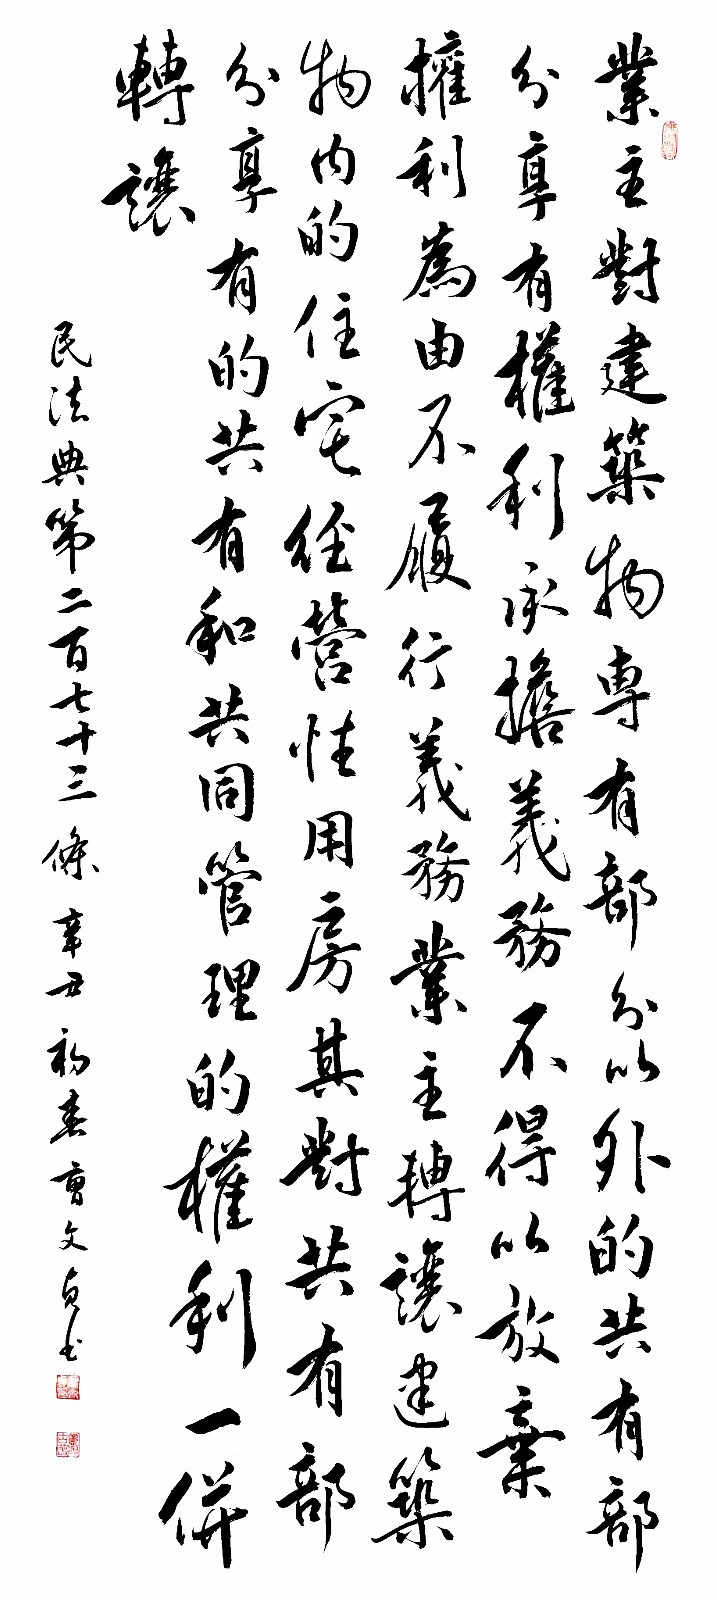 業主對建築物專有部分以外的共有部
分享有權利承擔義務不得以放棄
權利為由不履行義務業主轉讓建築
物內的住宅經營性用房其對共有部
分享有的共有和共同管理的權利一併
轉讓
民法典第二百七十三條 辛丑初春 文 书